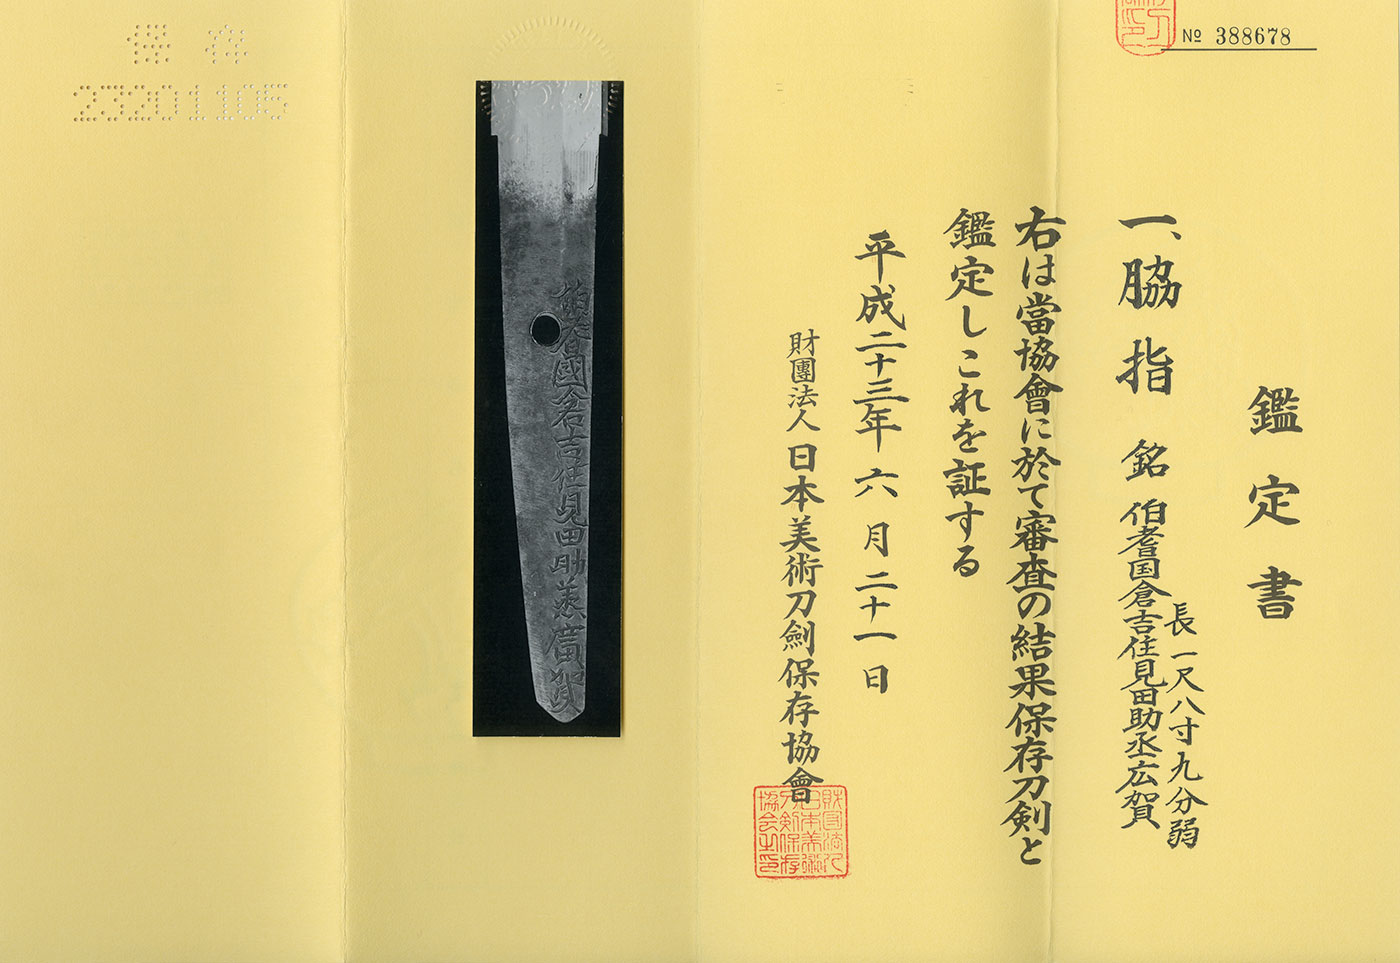 № 388678
鑑定書
一、脇指 銘 伯耆国倉吉住見田助丞広賀
長一尺八寸九分弱
右は當協會に於て審査の結果保存刀剣と
鑑定しこれを証する
平成二十三年六月二十一日
財團法人日本美術刀劍保存協會
財団法人日本美術刀剣保存協会之印
伯耆國倉吉住見田助丞廣賀
保存
23201105